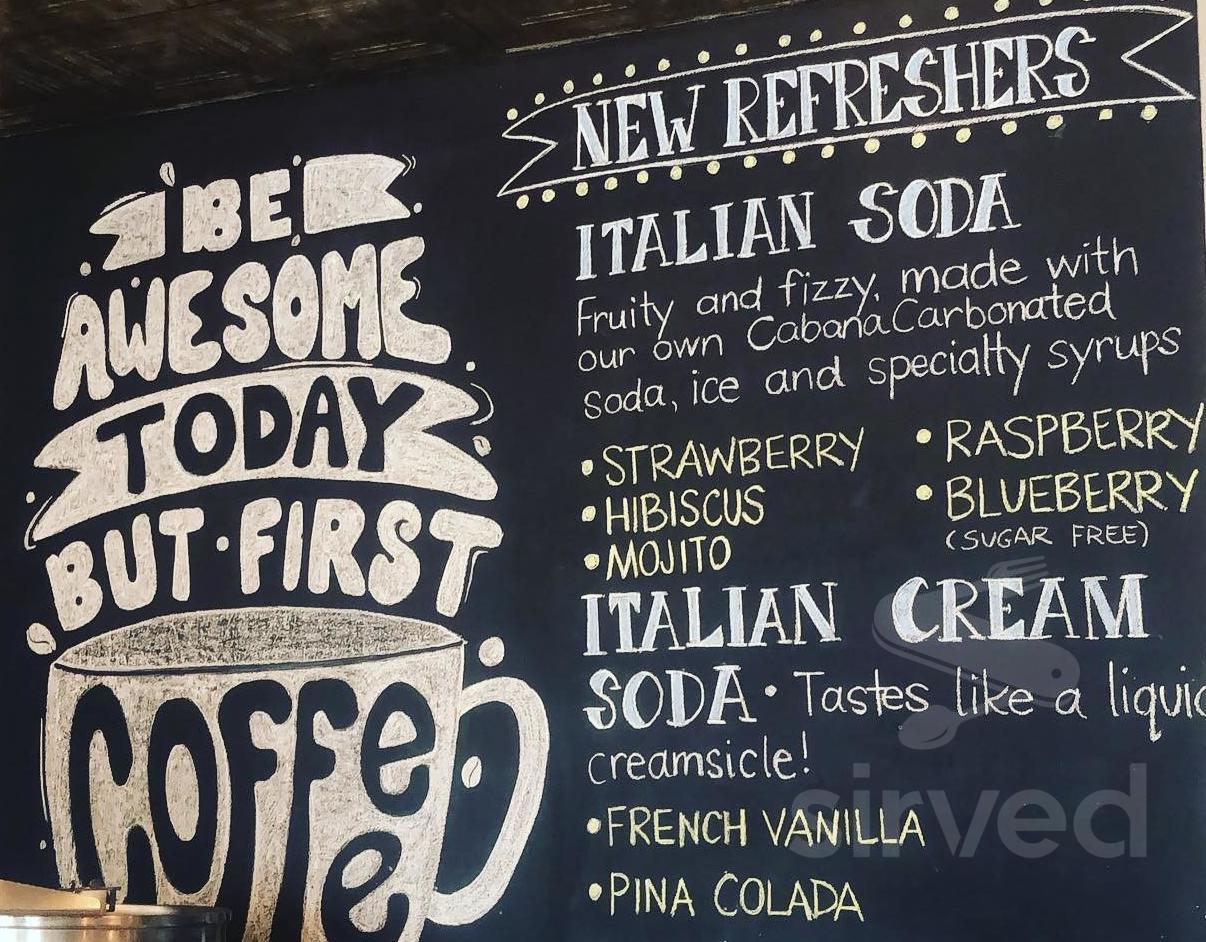 BE
AWESOME
TODAY
BUT · FIRST
COFFEE
NEW REFRESHERS
ITALIAN SODA
Fruity and fizzy, made with
our own Cabana Carbonated
soda, ice and specialty syrups
• STRAWBERRY
• HIBISCUS
• MOJITO
• RASPBERRY
• BLUEBERRY
(SUGAR FREE)
ITALIAN CREAM
SODA • Tastes like a liquid
creamsicle!
• FRENCH VANILLA
• PINA COLADA
sirved